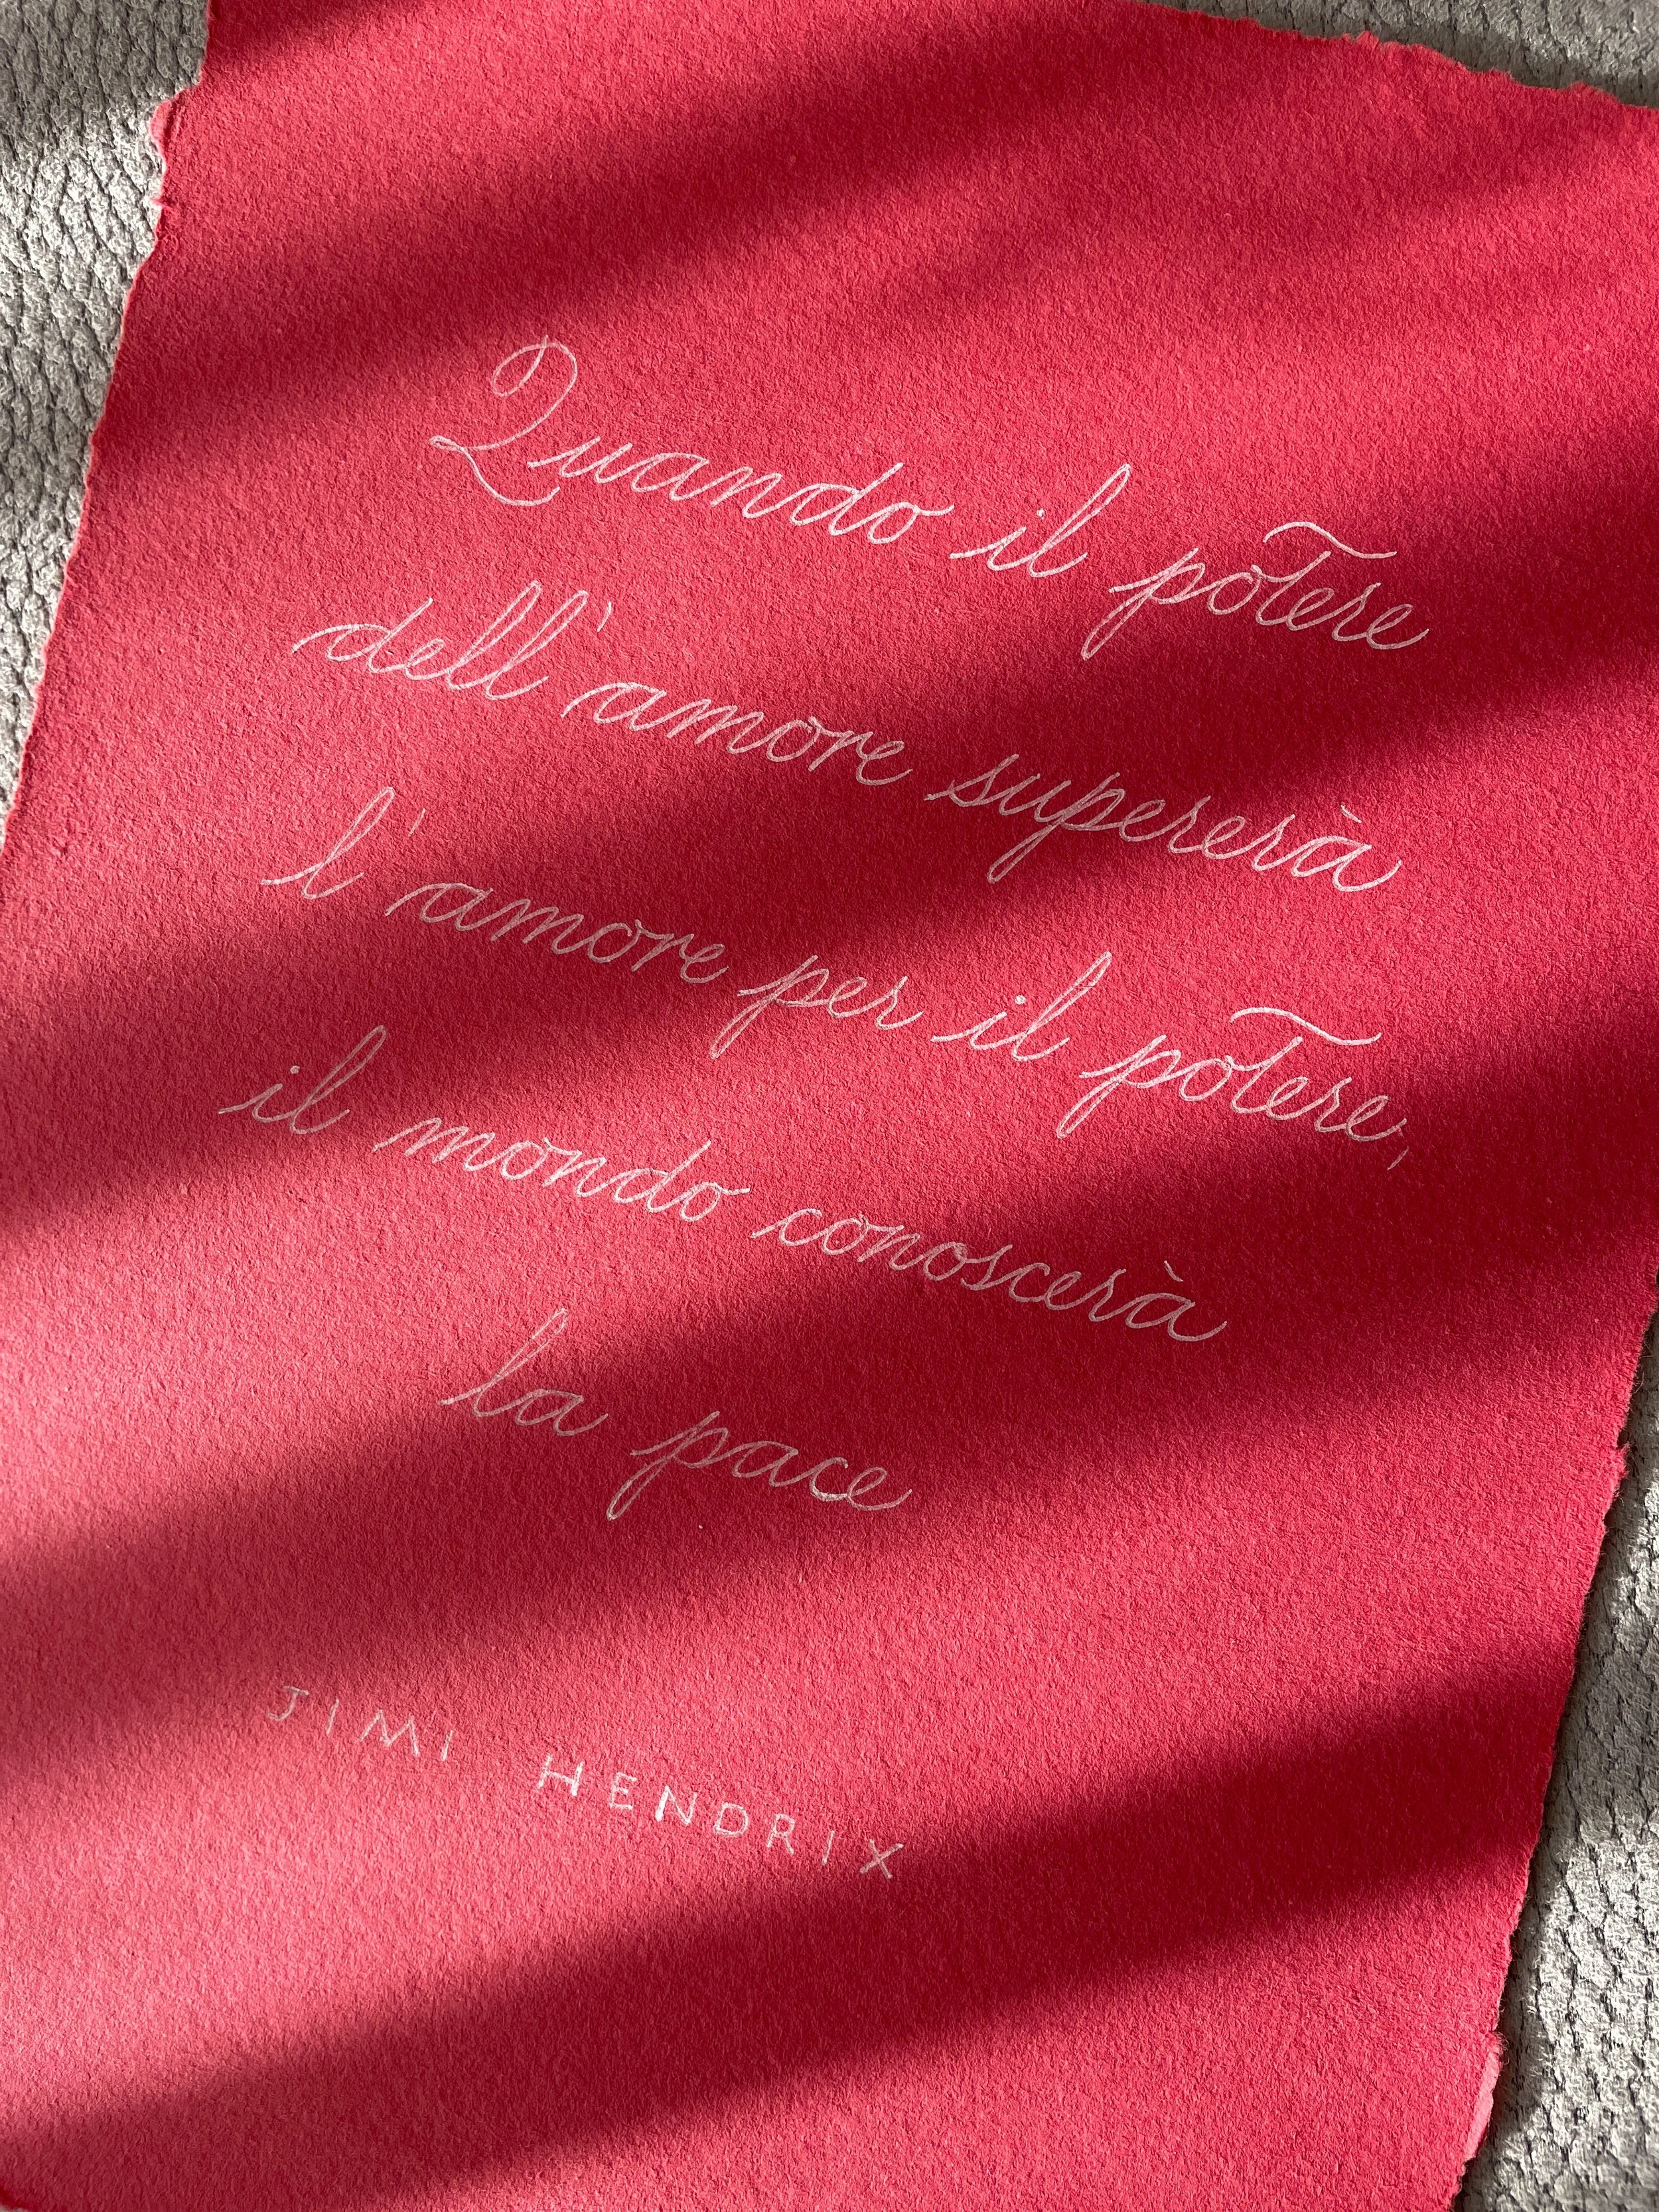 Quando il potere
dell'amore supererà
l'amore per il potere,
il mondo conoscerà
la pace
JIMI HENDRIX